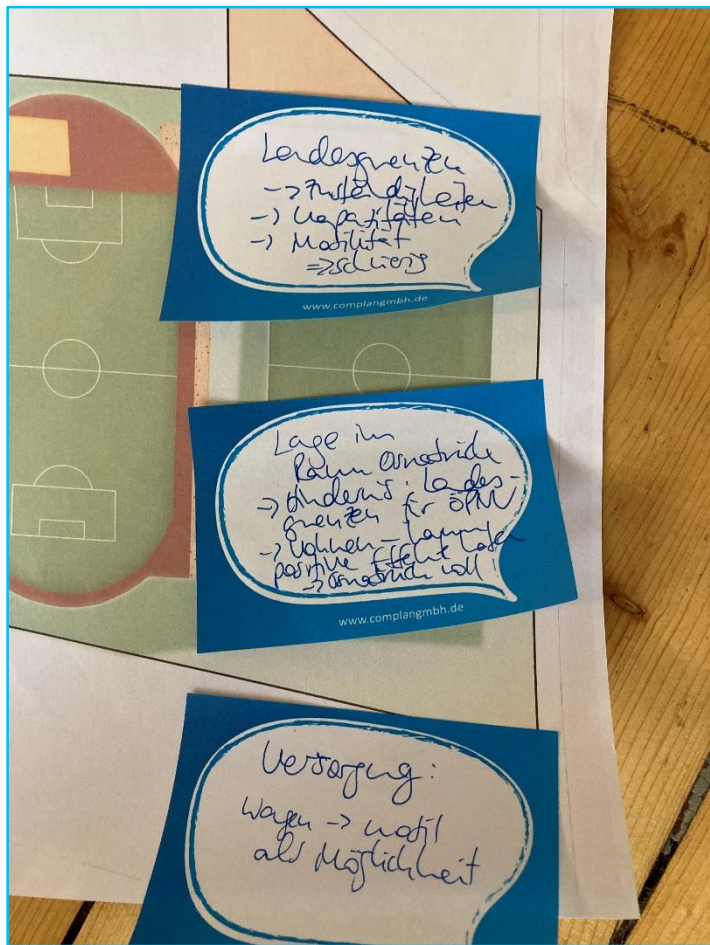 Landesgrenzen
-> Zuständigkeiten
-> Kapazitäten
-> Mobilität
=> schwierig
www.complangmbh.de
Lage im
Raum Osnabrück
-> Hindernis: Landes-
grenzen für ÖPNV
-> Wohnen -
positive Effekt
-> Osnabrück voll
www.complangmbh.de
Versorgung:
Wagen -> mobil
als Möglichkeit